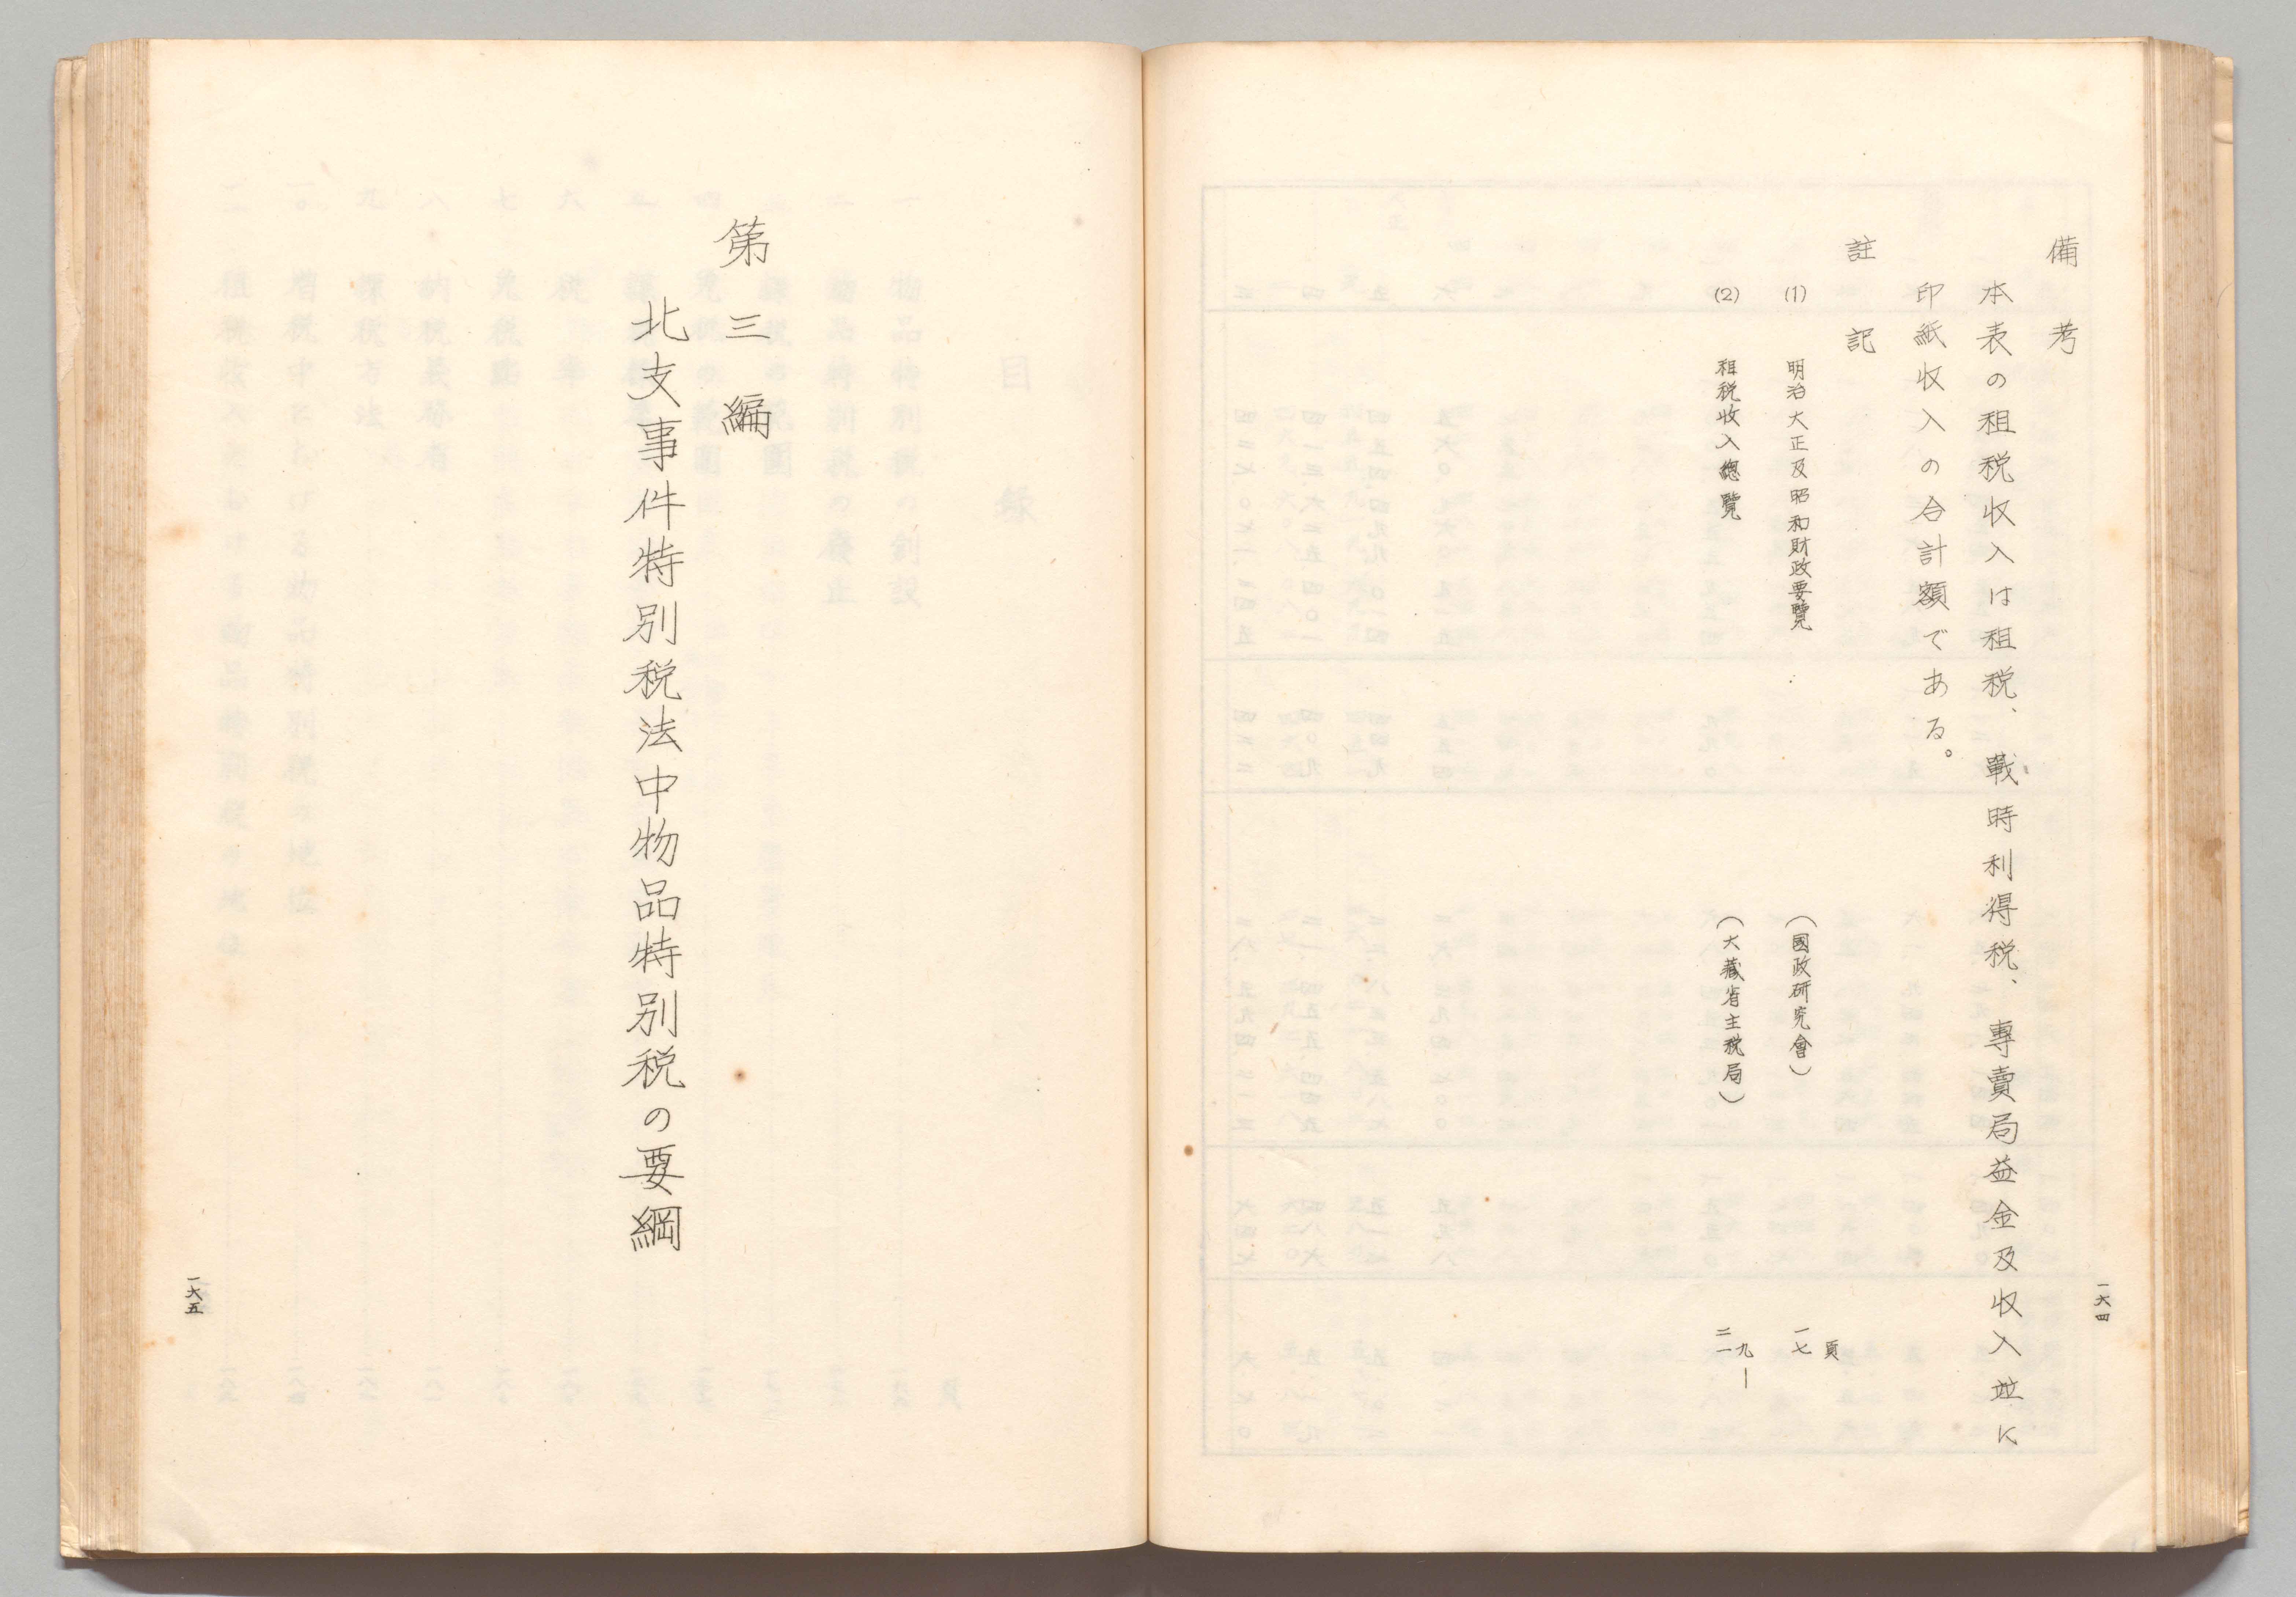 備考
本表の租税収入は租税、戰時利得税、專賣局益金及収入並に
印紙収入の合計額である。
註記
(1) 明治大正及昭和財政要覽 (國政研究會) 一七頁
(2) 租税收入總覽 (大藏省主税局) 一九―二一
一六四
第三編
北支事件特別税法中物品特別税の要綱
一六五